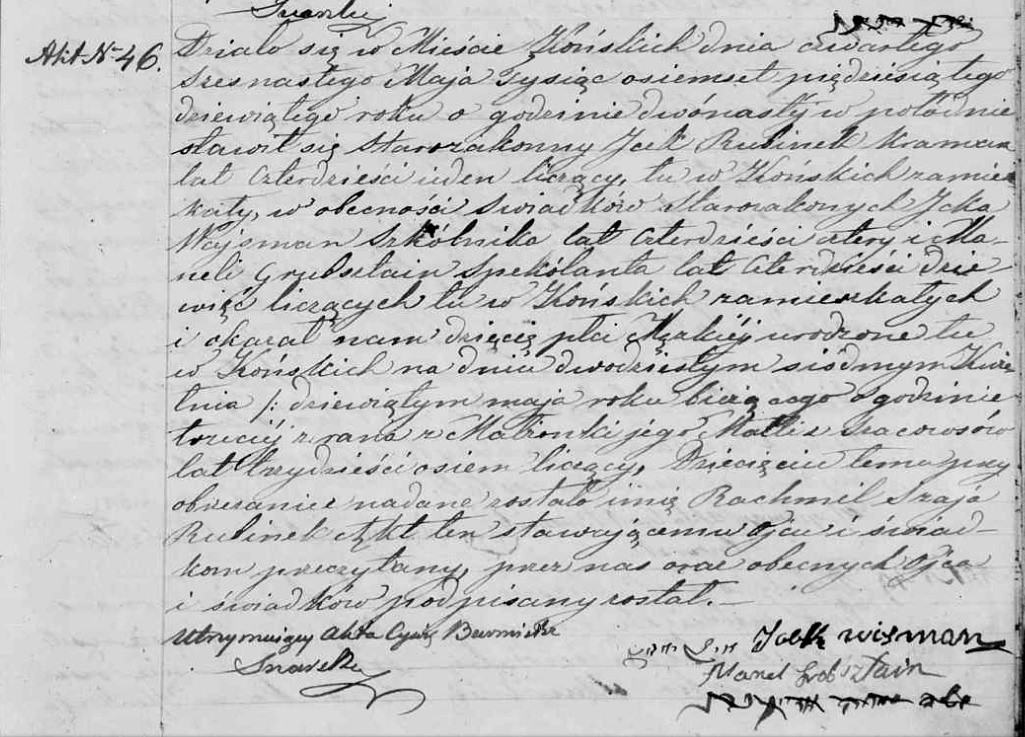 Akt No 46.
Działo się w Mieście Końskich dnia czwartego
szesnastego Maja Tysiąc osiemset piędziesiątego
dziewiątego roku o godzinie dwónastéj w połódnie
stawił się Starozakonny Icek Rubinek Kramarz
lat czterdzieści ieden liczący, tu w Końskich zamiesz
kały, w obecności świadków Starozakonych Icka
Wajsman Szkólnika lat czterdzieści cztery i Ma-
neli Grubsztain Spekólanta lat czterdzieści dzie-
więć liczących tu w Końskich zamieszkałych
i okazał nam dziecię płci Męzkiéj urodzone tu
w Końskich na dniu dwodziestym siódmym Kwie
tnia /: dziewiątym maja roku bieżącego o godzinie
trzeciéj z rana z Małżonki jego Matli z
lat trzydzieści osiem liczący, Dziecięciu temu przy
obrzezanie nadane zostało imię Rachmil Szaja
Rubinek Akt ten stawającemu Ojcu i świad-
kom przeczytany, przez nas oraz obecnych Ojca
i świadków podpisany został.-
Utrzymujący Akta Cywi Burmistrz
Icek wisman
Manel Grobsztain